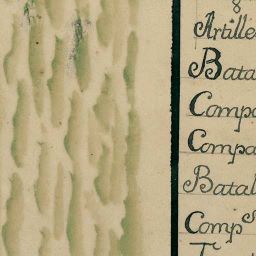 8
Artille
Bata
Compa
Compa
Batal
Comp